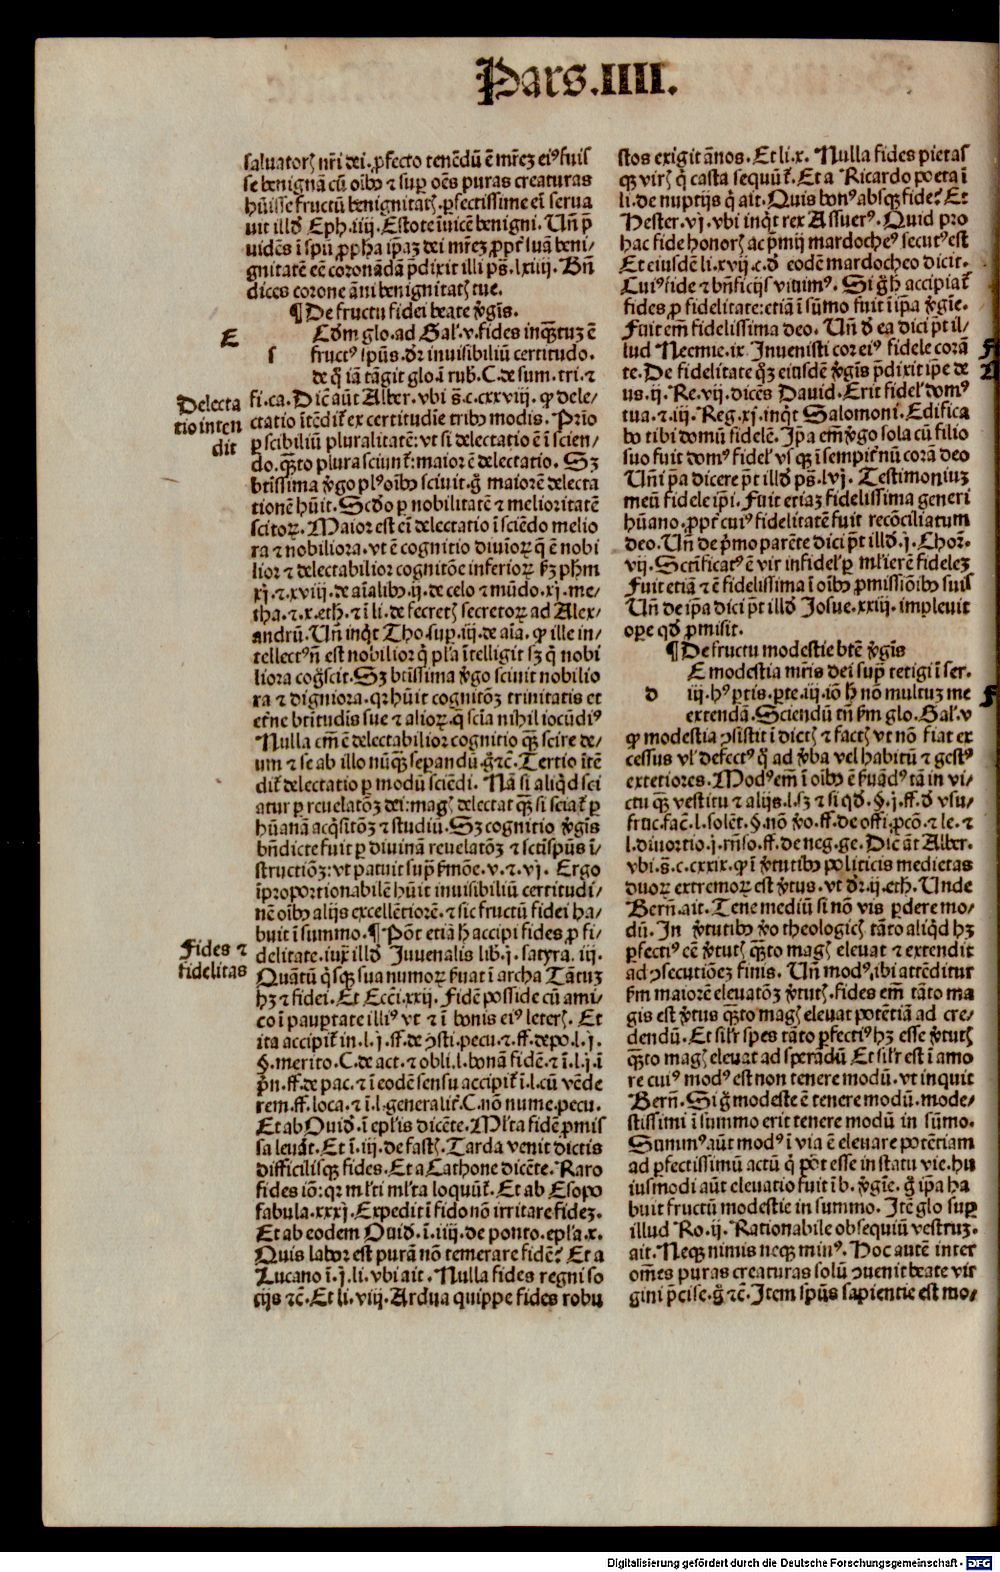 Pars.IIII.
saluatorꝭ nr̄i dei.ꝓfecto tenēdū ē mr̄eʒ eiꝰ fuis
se benignā cū oībꝰ ⁊ suꝑ oēs puras creaturas
hūisse fructū benignitatꝭ.ꝑfectissime eī serua
uit illḋ Eph.iiij.Estote īuicē benigni. Uñ p̄
uidēs ī spū ꝓpħa ip̄aʒ dei mr̄eʒ ꝓpt̄ suā beni⸗
gnitatē eē coronādā p̄dixit illi ps̄.lxiiij. Bn̄
dices corone āni benignitatꝭ tue.
¶ De fructu fidei beate v̄gīs.
E
Cḋm glo.ad Gal'.v.fides inqꝫtuʒ ē
s fructꝰ spūs.dr̄ inuisibiliū certitudo.
de q̇ iā tāgit glo.ī rub̄.C.de sum.tri.⁊
Delecta
tio inten
dit
fi.ca.Dic̄ aūt Alber.vbi s̄.c.cxxviij. ꝙ dele⸗
ctatio ītēdit̄ ex certitudīe tribꝰ modis. Prīo
ꝑ scibiliū pluralitatē: vt si delectatio ē ī scien⸗
do.qꝫto plura sciunt̄: maior ē delectatio. Sʒ
btīssima v̄go plꝰ oībꝰ sciuit.g̊ maiorē delecta
tionē hūit. Scḋo ꝑ nobilitatē ⁊ melioritatē
scitoꝝ. Maior est eī delectatio ī sciēdo melio
ra ⁊ nobiliora.vt ē cognitio diuīoꝝ q̄ ē nobi
lior ⁊ delectabilior cognitōe inferioꝝ ẜʒ pħm
xj ⁊ xviij.de aīalibꝰ.ij.de celo ⁊ mūdo.xj.me⸗
tha.⁊.x.eth.⁊ ī li.de secretꝭ secretoꝝ ad Alex⸗
andrū.Uñ inq̇t Tho.suꝑ.iij.de aīa. ꝙ ille in⸗
tellectꝰ n̄ est nobilior q̇ pl'a ītelligit sʒ q̇ nobi
liora cog̊scit. Sʒ btīssima v̄go sciuit nobilio
ra ⁊ digniora.qꝛ hūit cognitōʒ trinitatis et
et̄ne btītudis sue ⁊ alioꝝ.q̄ scīa nihil iocūdiꝰ
Nulla em̄ ē delectabilior cognitio qꝫ scire de⸗
um ⁊ se ab illo nūqꝫ seꝑandū.g̊ ⁊c̄. Tertio ītē
dit̄ delectatio ꝑ modū sciēdi. Nā si aliq̇d sci
atur ꝑ reuelatōʒ dei: magꝭ delectat qꝫ si sciat̄ ꝑ
hūanā acq̇sitōʒ ⁊ studiū. Sʒ cognitio v̄gīs
bn̄dicte fuit ꝑ diuinā reuelatōʒ ⁊ sctīspūs ī⸗
structiōʒ: vt patuit supͣ ẜmōe.v.⁊.vj. Ergo
īproportionabilē hūit inuisibiliū certitudi⸗
nē oībꝰ alijs excellētiorē.⁊ sic fructū fidei ha⸗
buit ī summo.¶ Pōt etiā ħ accipi fides ꝓ fi⸗
Fides ⁊
fidelitas
delitate.iuxͣ illḋ Juuenalis lib.j.satyra. iij.
Quātū q̇sqꝫ sua numoꝝ ẜuat ī archa Tātuʒ
hʒ ⁊ fidei. Et Eccī.xxij. Fidē posside cū ami⸗
co ī pauꝑtate illiꝰ vt ⁊ ī bonis eiꝰ leterꝭ. Et
ita accipit̄ in.l.j.ff.de ꝯsti.pecu.⁊.ff.depo.l.j.
§.merito.C.de act.⁊ obli.l.bonā fidē.⁊ ī.l.j.ī
pͥn.ff.de pac.⁊ ī eodē sensu accipit̄ ī.l.cū vēde
rem.ff.loca.⁊ ī.l.generalit̄.C.nō nume.pecu.
Et ab Ouiḋ.ī epl'is dicēte. Ml'ta fidē ꝓmis
sa leuāt. Et ī.iij.de fastꝭ. Tarda venit dictis
difficilisqꝫ fides. Et a Cathone dicēte. Raro
fides iō: qꝛ ml'ti ml'ta loquūt̄. Et ab Esopo
fabula.xxxj. Expedit ī fido nō irritare fideʒ.
Et ab eodem Ouiḋ.ī.iiij.de ponto.epl'a.x.
Quis labor est purā nō temerare fidē? Et a
Lucano ī.j.li.vbi ait. Nulla fides regni so
cijs ⁊c̄. Et li.viij. Ardua quippe fides robu
stos exigit ānos. Et li.x. Nulla fides pietas
qꝫ virꝭ q̇ casta sequūt̄. Et a Ricardo poeta ī
li.de nuptijs q̇ ait. Quis bonꝰ absqꝫ fide? Et
Hester.vj.vbi inq̇t rex Assuerꝰ. Quid pro
hac fide honorꝭ ac p̄mij mardocheꝰ secutꝰ est
Et eiusdē li.xvij.c.ḋ eodē mardocheo dicit.
Cuiꝰ fide ⁊ bn̄ficijs viuimꝰ. Si g̊ ħ accipiat̄
fides ꝓ fidelitate: etiā ī sūmo fuit ī ip̄a v̄gīe.
Fuit em̄ fidelissima deo. Uñ ḋ ea dici pōt il⸗
lud Neemie.ix. Inuenisti cor eiꝰ fidele corā
te. De fidelitate qꝫ eiusdē v̄gīs p̄dixit ip̄e de
us.ij.Re.vij.dicēs Dauid. Erit fidel' domꝰ
tua.⁊.iij. Reg.xj.inq̇t Salomoni. Edifica
bo tibi domū fidelē. Ip̄a em̄ v̄go sola cū filio
suo fuit domꝰ fidel' vsqꝫ ī sempit̄nū corā deo
Uñ ip̄a dicere pōt illḋ ps̄.lvj. Testimoniuʒ
meū fidele ip̄i. Fuit etiaʒ fidelissima generi
hūano.ꝓpt̄ cuiꝰ fidelitatē fuit recōciliatum
deo. Uñ de p̄mo parēte dici pōt illḋ.j.Choꝝ.
vij. Sctīficatꝰ ē vir infidel' ꝑ ml'ierē fideleʒ
Fuit etiā ⁊ ē fidelissima ī oībꝰ ꝓmissiōibꝰ suis
Uñ de ip̄a dici pōt illḋ Josue.xxiij. impleuit
oꝑe qḋ ꝓmisit.
¶ De fructu modestie btē v̄gīs
E modestia mr̄is dei supͣ tetigi ī ser.
d iij.hꝰ ꝑtis.ꝑte.iij.iō ħ nō multuʒ me
extendā. Sciendū tn̄ ẜm glo. Gal'.v
ꝙ modestia ꝯsistit ī dictꝭ ⁊ factꝭ vt nō fiat ex
cessus vl' defectꝰ q̇ ad v̄ba vel habitū ⁊ gestꝰ
exteriores. Modꝰ em̄ ī oībꝰ ē ẜuādꝰ tā in vi⸗
ctu qꝫ vestitu ⁊ alijs.l.sʒ ⁊ si qḋ.§.j.ff.ḋ vsu⸗
fruc.faē.l.solēt.§.nō v̄o.ff.de offi.ꝓcō.⁊ le.⁊
l.diuortio.j.rn̄so.ff.de neg.ge. Dic̄ āt Alber.
vbi.s̄.c.cxxix.ꝙ ī v̄tutibꝰ politicis medietas
duoꝝ extremoꝝ est v̄tus.vt dr̄.ij.eth. Unde
Bern̄.ait. Tene mediū si nō vis ꝑdere mo⸗
dū. In v̄tutibꝰ v̄o theologicꝭ tāto aliq̇d hʒ
ꝑfectiꝰ eē v̄tutꝭ qꝫto magꝭ eleuat ⁊ extendit
ad ꝯsecutiōeʒ finis. Uñ modꝰ ibi attēditur
ẜm maiorē eleuatōʒ v̄tutꝭ.fides em̄ tāto ma
gis est v̄tus qꝫto magꝭ eleuat potētiā ad cre⸗
dendū. Et sil'r spes tāto ꝑfectiꝰ hʒ esse v̄tutꝭ
qꝫto magꝭ eleuat ad sperādū Et sil'r est ī amo
re cuiꝰ modꝰ est non tenere modū.vt inquit
Bern̄. Si g̊ modeste ē tenere modū.mode⸗
stissimi ī summo erit tenere modū in sūmo.
Summꝰ aūt modꝰ ī via ē eleuare potētiam
ad ꝑfectissimū actū q̇ pōt esse in statu vie.hu
iusmodi aūt eleuatio fuit ī b. v̄gīe. g̊ ip̄a ha
buit fructū modestie in summo. Itē glo suꝑ
illud Ro.ij. Rationabile obsequiū vestruʒ.
ait. Neqꝫ nimis neqꝫ minꝰ. Hoc autē inter
om̄es puras creaturas solū ꝯuenit beate vir
gini p̄cise.g̊ ⁊c̄. Item spūs sapientie est mo⸗
Digitalisierung gefördert durch die Deutsche Forschungsgemeinschaft - DFG